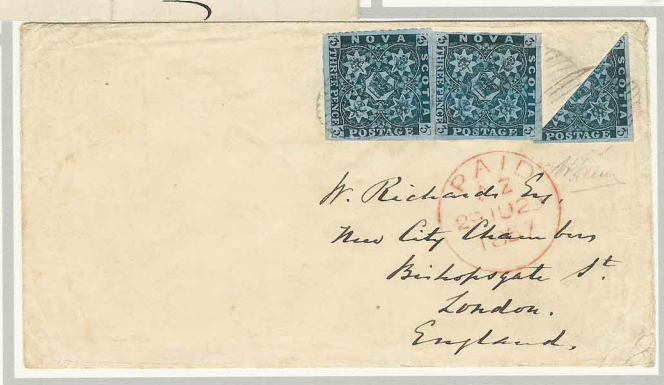 NOVA SCOTIA THREE PENCE POSTAGE
NOVA SCOTIA THREE PENCE POSTAGE
SCOTIA POSTAGE
PAID
29 JU 29
1857
W. Richards Esq.
New City Chambers
Bishopsgate St.
London.
England.